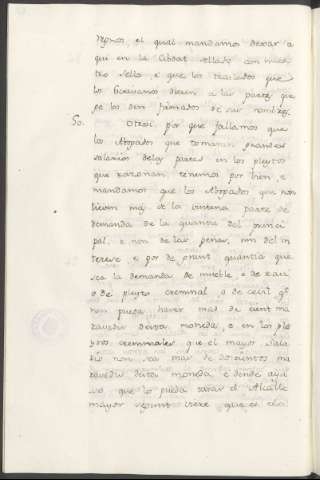 el qual mandamos dexar a
qui en la Cibdat sellado con nues
tro sello, e que los traslados que
los Escrivanos dieren a las partes que
ge los den firmados de sus nombres.
50. Otrosi, por que fallamos que
los Abogados que tomavan grandes
salarios de las partes en los pleytos
que razonan, tenemos por bien, e
mandamos que los Abogados que non
lieven mas de la veintena parte de
demanda de la quantia del princi
pal, e non de las penas, nin del in
terese, e por de grant quantia que
sea la demanda de mueble, o de raiz
o de pleyto creminal, o de cevil qe
non pueda haver mas de cient ma
ravedis desta moneda, e en los ple
ytos creminales que el mayor sala
rio non sea mas de docientos ma
ravedis desta moneda e dende ayu
so, que lo pueda tasar el Alcalle
mayor segunt viere que es